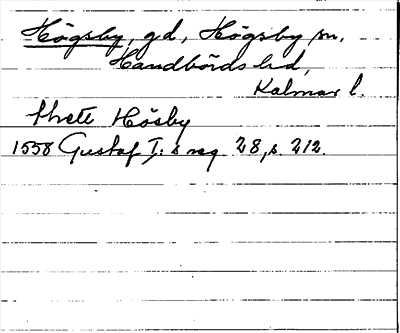 Högsby, gd, Högsby sn,
Handbörds hd,
Kalmar l.
thete Hösby
1558 Gustaf I:s reg. 28, s. 212.